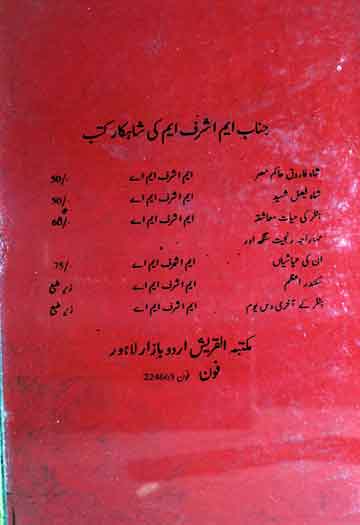 جناب ایم اشرف ایم کی شاہکار کتب
شاہ فاروق حاکم مصر ایم اشرف ایم اے 50/-
شاہ فیصل شہید ایم اشرف ایم اے 50/-
ہٹلر کی حیات معاشقہ ایم اشرف ایم اے 60/-
مہاراجہ رنجیت سنگھ اور
ان کی عیاشیاں ایم اشرف ایم اے 75/-
سکندر اعظم ایم اشرف ایم اے زیر طبع
ہٹلر کے آخری دس یوم ایم اشرف ایم اے زیر طبع
مکتبہ القریش اردو بازار لاہور
فون فون 224665